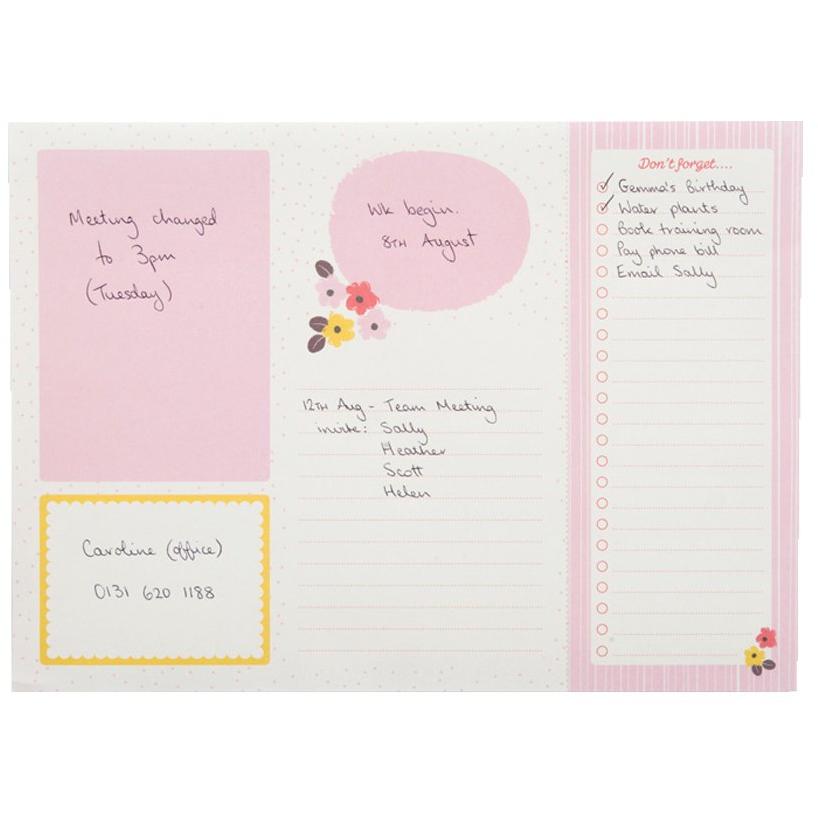 Meeting changed
to 3pm
(Tuesday)
Wk begin.
8TH August
12TH Aug - Team Meeting
invite: Sally
Heather
Scott
Helen
Caroline (office)
0131 620 1188
Don't forget....
Gemma's Birthday
Water plants
Book training room
Pay phone bill
Email Sally